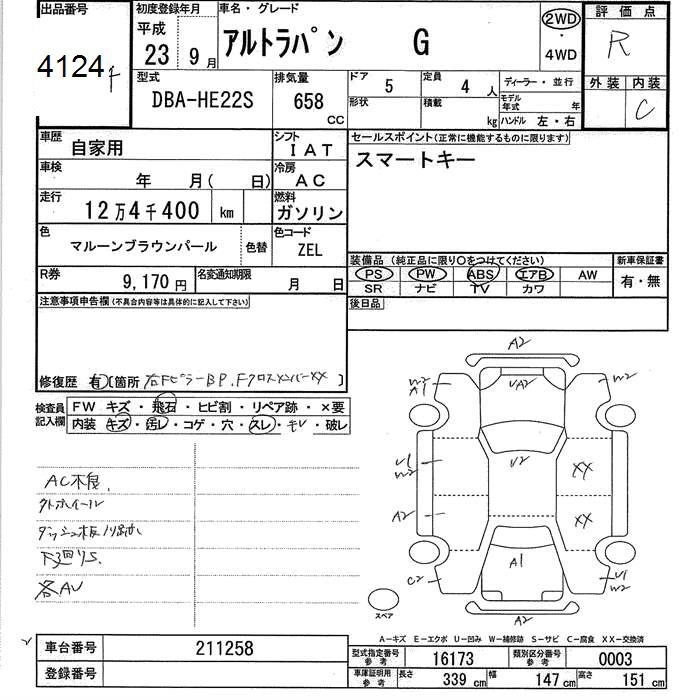 出品番号
4124
初度登録年月
平成
23 9月
車名・グレード
アルトラパン G
2WD
・
4WD
評価点
R
外装 内装
C
型式
DBA-HE22S
排気量
658
CC
ドア
5
定員
4 人
ディーラー・並行
形状
積載
kg
モデル年式 年
ハンドル 左・右
車歴
自家用
シフト
IAT
セールスポイント(正常に機能するものに限ります)
スマートキー
車検
年 月( 日)
冷房
AC
走行
12万4千400 km
燃料
ガソリン
色
マルーンブラウンパール
色替
色コード
ZEL
装備品(純正品に限り○をつけてください)
PS PW ABS エアB AW
SR ナビ TV カワ
新車保証書
有・無
R券
9,170円
名変通知期限
月 日
後日品
注意事項申告欄(不具合内容等は具体的に記入して下さい)
修復歴 有[箇所 右FピラーBP.FクロスメンバーXX ]
検査員記入欄
FW キズ・飛石・ヒビ割・リペア跡・×要
内装 キズ・汚レ・コゲ・穴・スレ・モレ・破レ
AC不良
外ホイール
ダッシュ板ハリ跡
下廻りS
各AU
A2
W2
A1
UA2
W2
U1
W2
U2
XX
A2
XX
A1
C2
U1
W2
A2
スペア
A-キズ E-エクボ U-凹み W-補修跡 S-サビ C-腐食 XX-交換済
車台番号
211258
登録番号
型式指定番号
参考
16173
類別区分番号
参考
0003
車庫証明用
参考
長さ
339 cm
幅
147 cm
高さ
151 cm